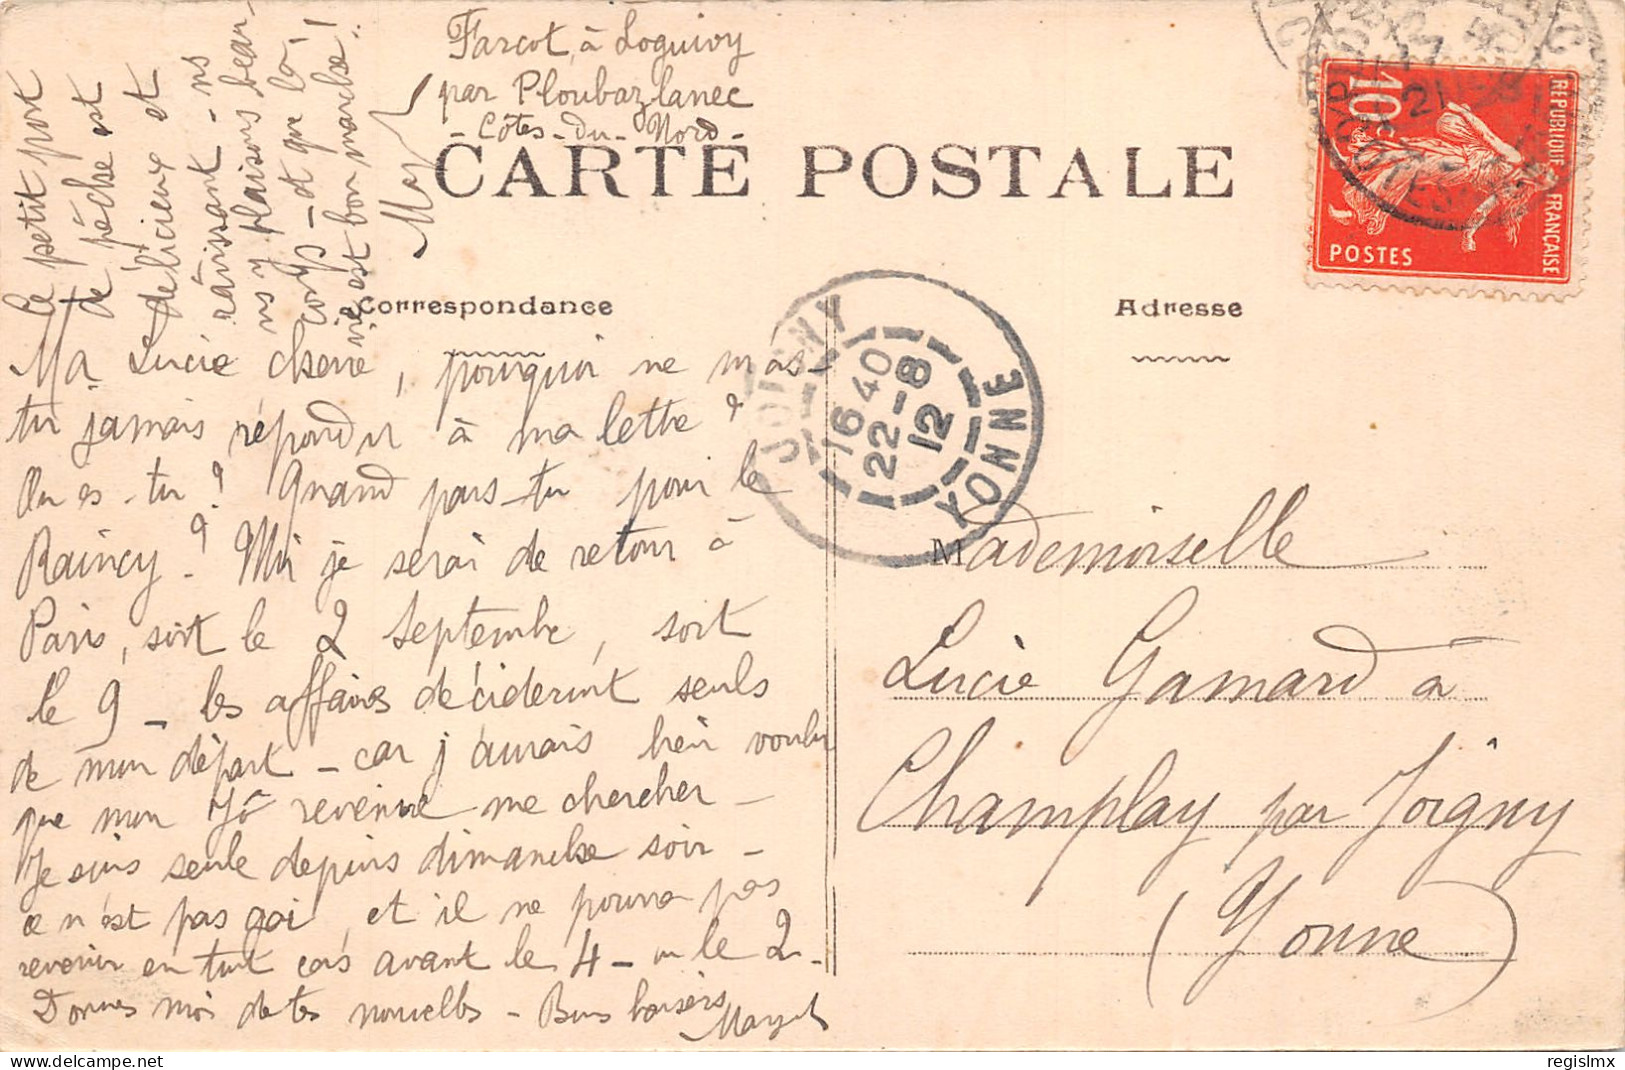 Farcot, à Loguivy
par Ploubazlanec
- Côtes - du - Nord -
CARTE POSTALE
Correspondance
Adresse
RÉPUBLIQUE FRANÇAISE
10c
POSTES
JOIGNY
16 40
22 - 8
12
YONNE
Ma Lucie cherie, pourquoi ne m'as-
tu jamais répondu à ma lettre ?
Ou es-tu ? Quand pars-tu pour le
Raincy ? Moi je serai de retour à
Paris, soit le 2 Septembre, soit
le 9 - les affaires décideront seuls
de mon départ - car j'aurais bien voulu
que mon Jô revienne me chercher -
Je suis seule depuis dimanche soir -
ce n'est pas gai, et il ne pourra pas
revenir en tout cas avant le 4 - ou le 2 -
Donnes moi de tes nouvelles - Bons baisers
Le petit port
de pêche est
délicieux et
ravissant - ns
ns y plaisons beau-
coup - et que là
vie est bon marché !
Mademoiselle
Lucie Gamard à
Champlay par Joigny
(Yonne)
delcampe.net
regislmx